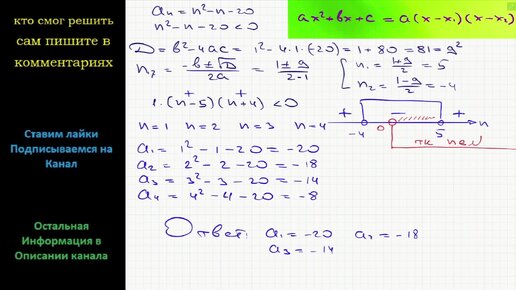 кто смог решить
сам пишите в
комментариях
Ставим лайки
Подписываемся на
Канал
Остальная
Информация в
Описании канала
aₙ = n² - n - 20
n² - n - 20 < 0
ax² + bx + c = a(x - x₁)(x - x₂)
D = b² - 4ac = 1² - 4·1·(-20) = 1 + 80 = 81 = 9²
n₁ = (1+9)/2 = 5
n₂ = (1-9)/2 = -4
+ +
1·(n-5)(n+4) < 0
+ - + n
-4 0 5
n=1 n=2 n=3 n=4
a₁ = 1² - 1 - 20 = -20
a₂ = 2² - 2 - 20 = -18
a₃ = 3² - 3 - 20 = -14
a₄ = 4² - 4 - 20 = -8
Ответ: a₁ = -20 a₂ = -18
a₃ = -14